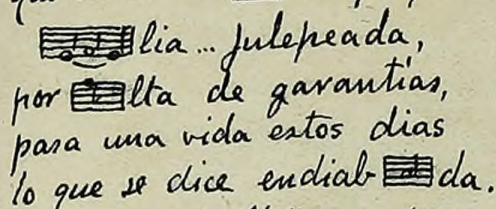 lia... julepeada,
por lta de garantías,
pasa una vida estos dias
lo que se dice endiab da.